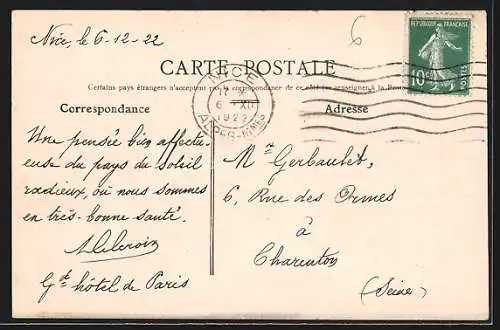 Nice, le 6-12-22
6
REPUBLIQUE FRANÇAISE
10c
POSTES
CARTE POSTALE
NICE
6 XII
1922
ALPES-MMES
Certains pays étrangers n'acceptent pas la correspondance de ce côté (se renseigner à la Poste)
Correspondance
Adresse
Une pensée bien affectu-
euse du pays du soleil
radieux, où nous sommes
en très-bonne santé.
Gd hôtel de Paris
Mr Gerbaulet,
6, Rue des Ormes
à
Charenton
(Seine)